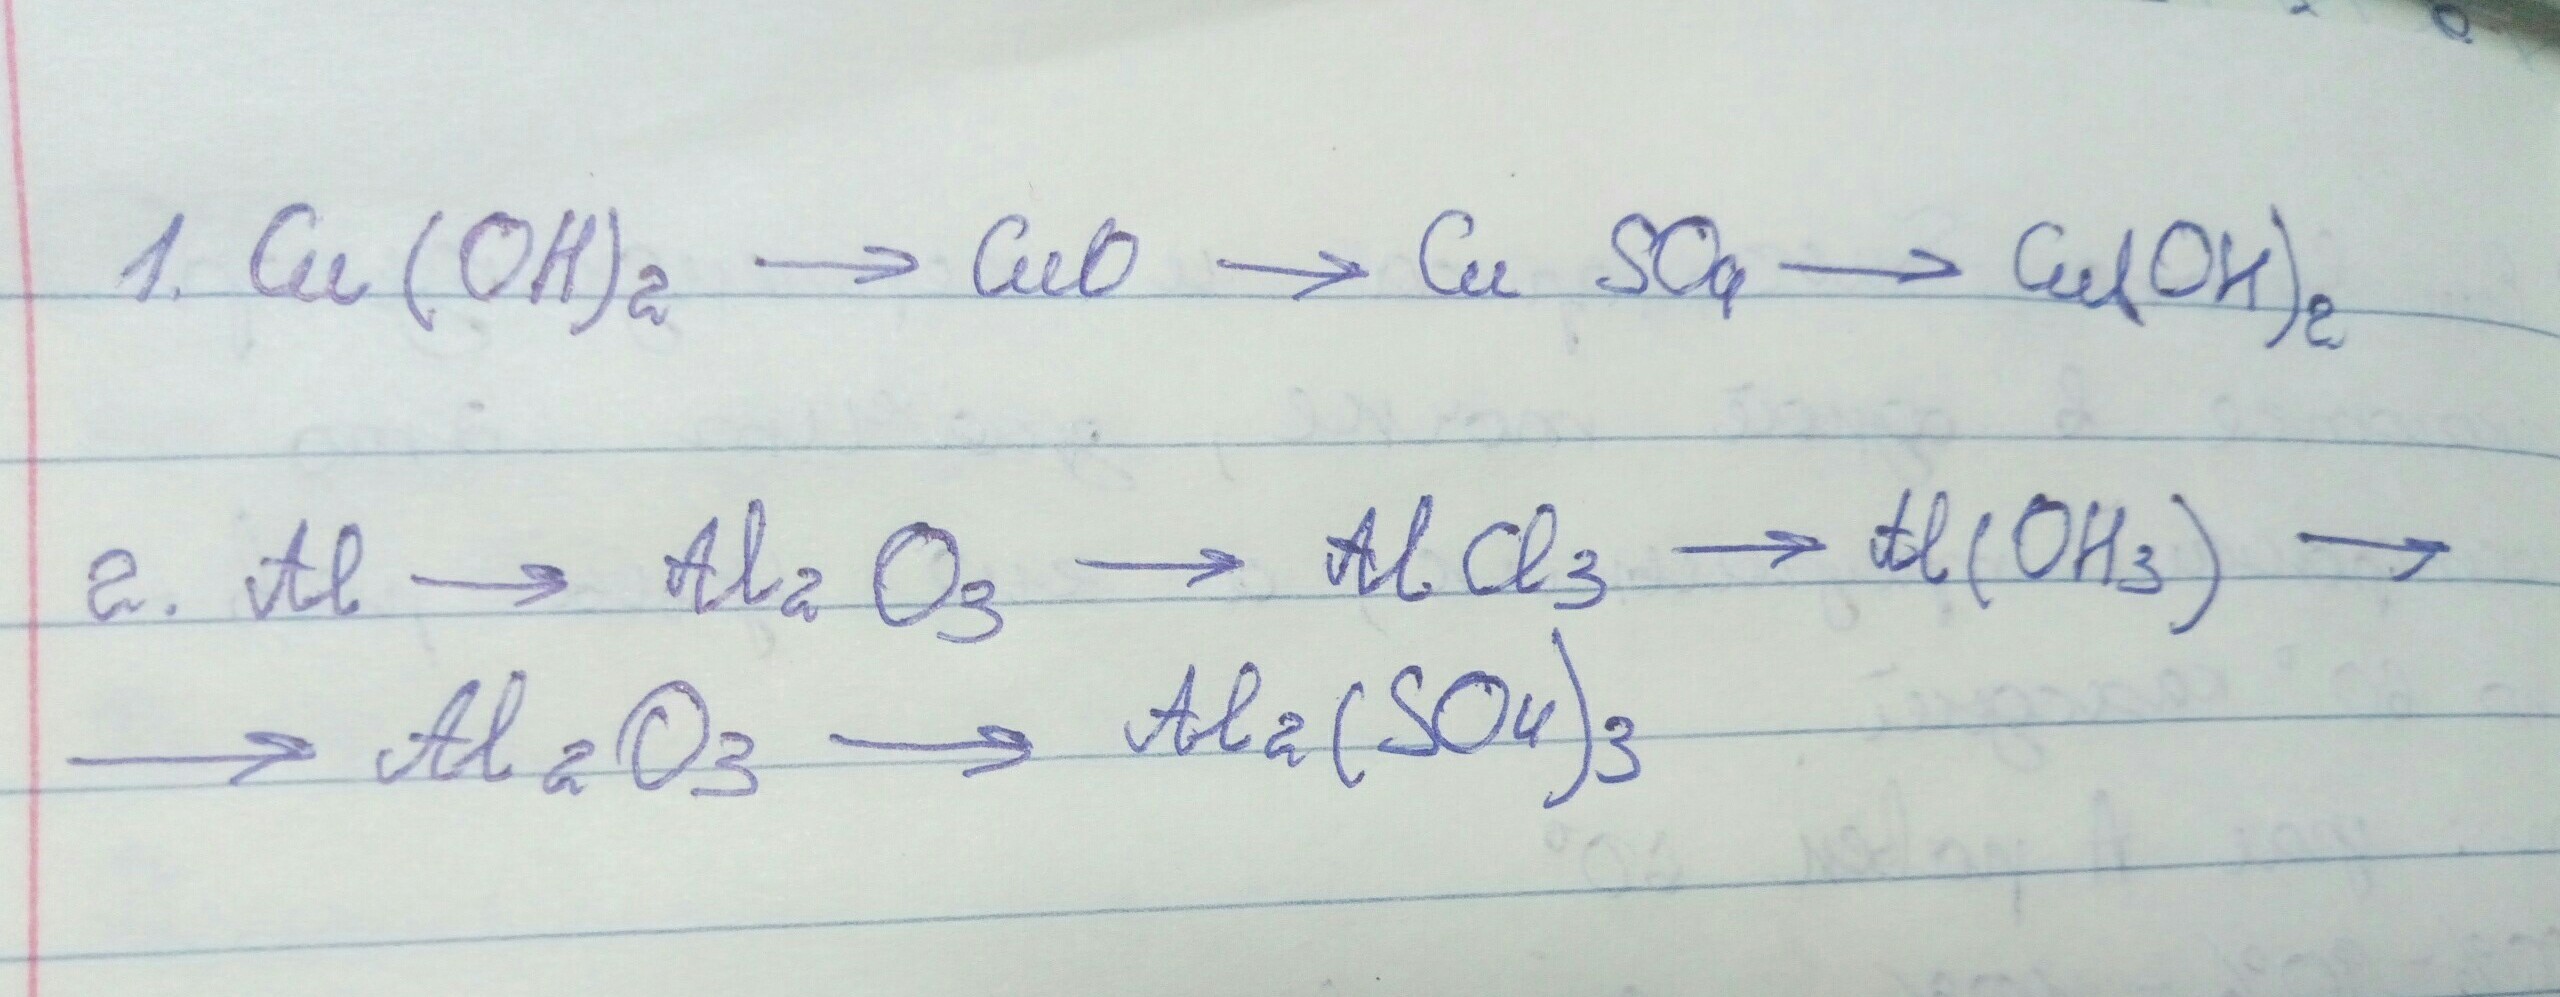 1. Cu(OH)₂ → CuO → CuSO₄ → Cu(OH)₂
2. Al → Al₂O₃ → AlCl₃ → Al(OH₃) →
→ Al₂O₃ → Al₂(SO₄)₃